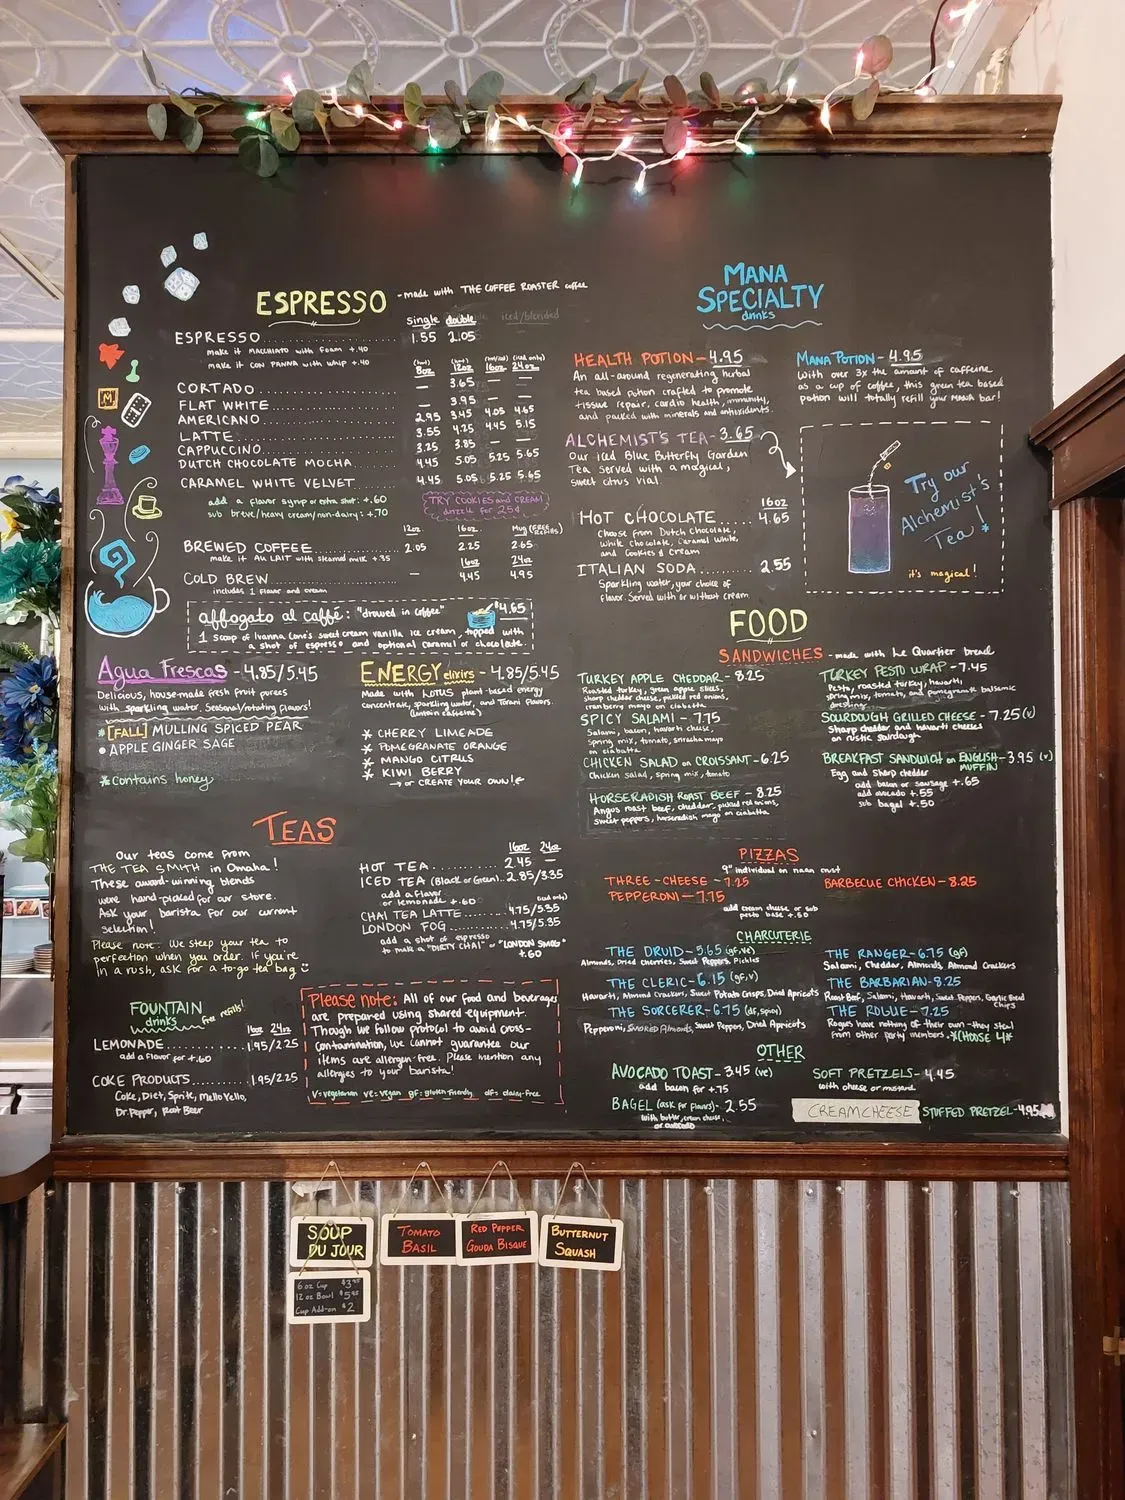 ESPRESSO - made with THE COFFEE ROASTER coffee
single double iced/blended
ESPRESSO 1.55 2.05
make it MACCHIATO with foam +.40
make it CON PANNA with whip +.40
(hot) 8oz (hot) 12oz (hot/iced) 16oz (iced only) 24oz
CORTADO — 3.65 — —
FLAT WHITE — 3.95 — —
AMERICANO 2.95 3.45 4.05 4.65
LATTE 3.55 4.25 4.45 5.15
CAPPUCCINO 3.25 3.85 — —
DUTCH CHOCOLATE MOCHA 4.45 5.05 5.25 5.65
CARAMEL WHITE VELVET 4.45 5.05 5.25 5.65
add a flavor syrup or extra shot: +.60
sub breve/heavy cream/non-dairy: +.70
TRY COOKIES and CREAM
drizzle for 25¢
12oz 16oz Mug (FREE REFILLS)
BREWED COFFEE 2.05 2.25 2.65
make it AU LAIT with steamed milk +.35
16oz 24oz
COLD BREW — 4.45 4.95
includes 1 flavor and cream
affogato al caffé: "drowned in coffee" $4.65
1 scoop of Ivanna Cone's sweet cream vanilla ice cream, topped with
a shot of espresso and optional caramel or chocolate.
Agua Frescas - 4.85/5.45
Delicious, house-made fresh fruit purees
with sparkling water. Seasonal/rotating flavors!
* [FALL] MULLING SPICED PEAR
• APPLE GINGER SAGE
*Contains honey
ENERGY elixirs - 4.85/5.45
Made with LOTUS plant-based energy
concentrate, sparkling water, and Torani flavors.
(contain caffeine)
* CHERRY LIMEADE
* POMEGRANATE ORANGE
* MANGO CITRUS
* KIWI BERRY
→ or CREATE YOUR OWN!
TEAS
Our teas come from
THE TEA SMITH in Omaha!
These award-winning blends
were hand-picked for our store.
Ask your barista for our current
selection!
Please note: We steep your tea to
perfection when you order. If you're
in a rush, ask for a to-go tea bag
16oz 24oz
HOT TEA 2.45 —
ICED TEA (Black or Green) 2.85/3.35
add a flavor
or lemonade +.60
(iced only)
CHAI TEA LATTE 4.75/5.35
LONDON FOG 4.75/5.35
add a shot of espresso
to make a "DIRTY CHAI" or "LONDON SMOG"
+.60
FOUNTAIN
drinks free refills!
16oz 24oz
LEMONADE 1.95/2.25
add a flavor for +.60
COKE PRODUCTS 1.95/2.25
Coke, Diet, Sprite, Mello Yello,
Dr. Pepper, Root Beer
Please note: All of our food and beverages
are prepared using shared equipment.
Though we follow protocol to avoid cross-
contamination, we cannot guarantee our
items are allergen-free. Please mention any
allergies to your barista!
V=vegetarian ve=vegan gf=gluten-friendly df=dairy-free
MANA
SPECIALTY
drinks
HEALTH POTION - 4.95
An all-around regenerating herbal
tea based potion crafted to promote
tissue repair, cardio health, immunity,
and packed with minerals and antioxidants.
MANA POTION - 4.95
With over 3x the amount of caffeine
as a cup of coffee, this green tea based
potion will totally refill your MANA bar!
ALCHEMIST'S TEA - 3.65
Our iced Blue Butterfly Garden
Tea served with a magical,
sweet citrus vial.
Try our
Alchemist's
Tea!
it's magical!
16oz
HOT CHOCOLATE 4.65
Choose from Dutch Chocolate,
White Chocolate, Caramel White,
and Cookies & Cream
ITALIAN SODA 2.55
Sparkling water, your choice of
flavor. Served with or without cream
FOOD
SANDWICHES - made with Le Quartier bread
TURKEY APPLE CHEDDAR - 8.25
Roasted turkey, green apple slices,
sharp cheddar cheese, pickled red onions,
cranberry mayo on ciabatta
SPICY SALAMI - 7.75
Salami, bacon, havarti cheese,
spring mix, tomato, sriracha mayo
on ciabatta
CHICKEN SALAD on CROISSANT - 6.25
Chicken salad, spring mix, tomato
HORSERADISH ROAST BEEF - 8.25
Angus roast beef, cheddar, pickled red onions,
sweet peppers, horseradish mayo on ciabatta
TURKEY PESTO WRAP - 7.45
Pesto, roasted turkey, havarti,
spring mix, tomato, and pomegranate balsamic
dressing
SOURDOUGH GRILLED CHEESE - 7.25 (v)
Sharp cheddar and havarti cheeses
on rustic sourdough
BREAKFAST SANDWICH on ENGLISH MUFFIN - 3.95 (v)
Egg and Sharp cheddar
add bacon or sausage +.65
add avocado +.55
sub bagel +.50
PIZZAS
9" individual on naan crust
THREE-CHEESE - 7.25
PEPPERONI - 7.75
BARBECUE CHICKEN - 8.25
add cream cheese or sub
pesto base +.50
CHARCUTERIE
THE DRUID - 5.65 (gf, ve)
Almonds, Dried Cherries, Sweet Peppers, Pickles
THE CLERIC - 6.15 (gf, v)
Havarti, Almond Crackers, Sweet Potato Crisps, Dried Apricots
THE SORCERER - 6.75 (df, spicy)
Pepperoni, Smoked Almonds, Sweet Peppers, Dried Apricots
THE RANGER - 6.75 (gf)
Salami, Cheddar, Almonds, Almond Crackers
THE BARBARIAN - 8.25
Roast Beef, Salami, Havarti, Sweet Peppers, Garlic Bread
Chips
THE ROGUE - 7.25
Rogues have nothing of their own - they steal
from other party members. *CHOOSE 4*
OTHER
AVOCADO TOAST - 3.45 (ve)
add bacon for +.75
BAGEL (ask for flavors) - 2.55
with butter, cream cheese,
or avocado
SOFT PRETZELS - 4.45
with cheese or mustard
CREAMCHEESE STUFFED PRETZEL - 4.95
SOUP
DU JOUR
6oz Cup $3.95
12oz Bowl $5.95
Cup Add-on $2
TOMATO
BASIL
RED PEPPER
GOUDA BISQUE
BUTTERNUT
SQUASH